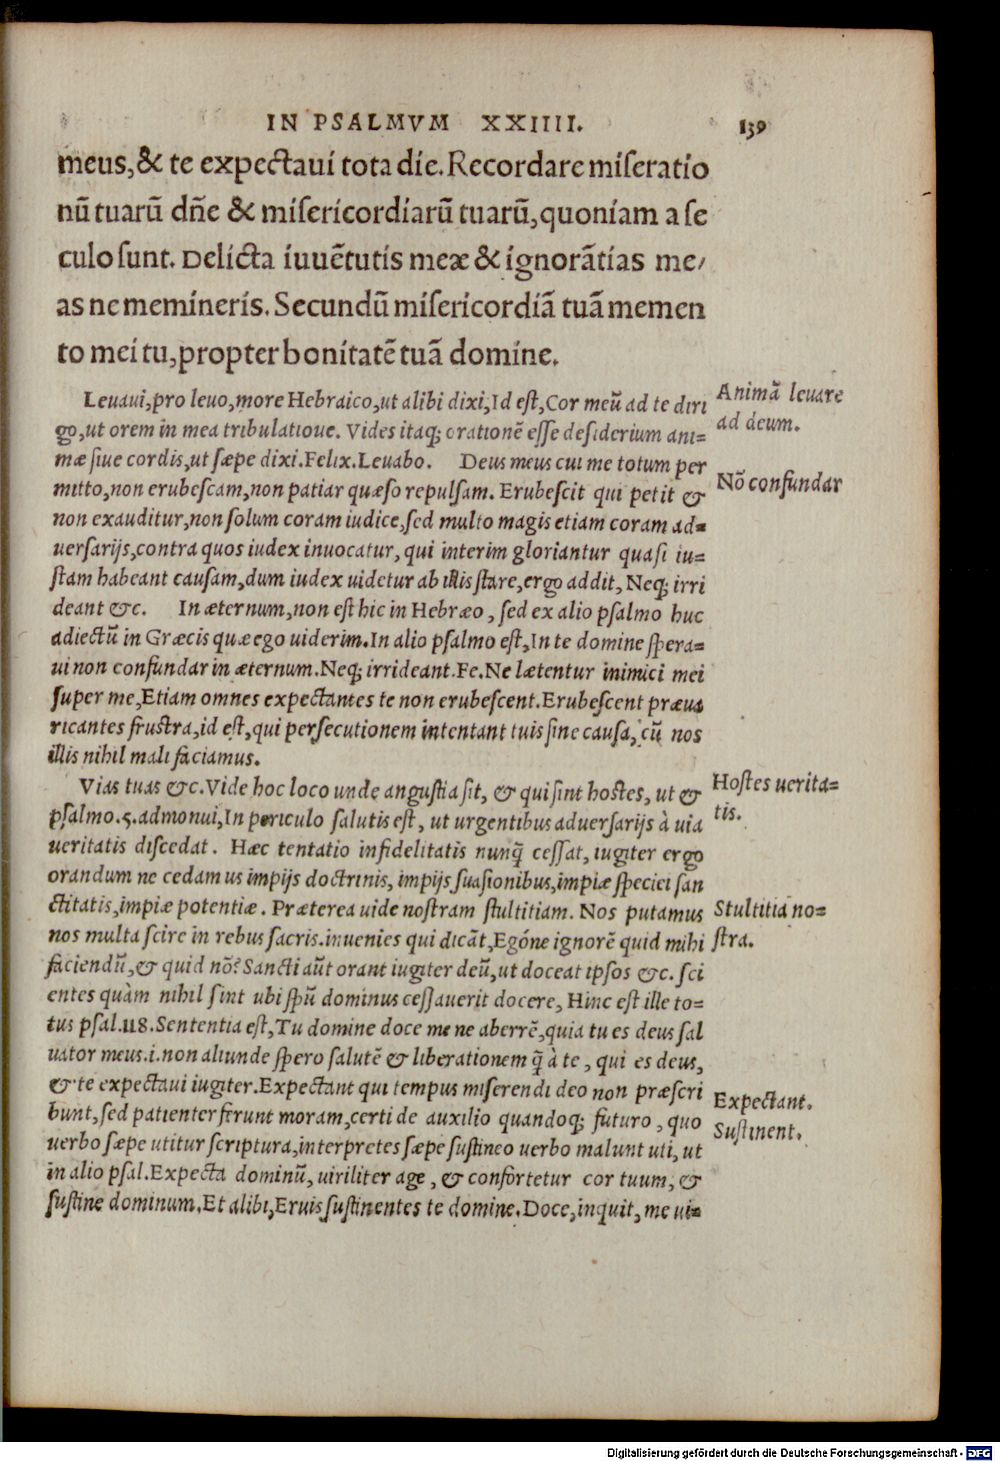 IN PSALMVM XXIIII. 139
meus, & te expectaui tota die. Recordare miseratio
nũ tuarũ dñe & misericordiarũ tuarũ, quoniam a se
culo sunt. Delicta iuuẽtutis meæ & ignorãtias me/
as ne memineris. Secundũ misericordiã tuã memen
to mei tu, propter bonitatẽ tuã domine.
Leuaui, pro leuo, more Hebraico, ut alibi dixi, Id est, Cor meũ ad te diri
go, ut orem in mea tribulatioue. Vides itaq; orationẽ esse desiderium ani=
mæ siue cordis, ut sæpe dixi. Felix. Leuabo. Deus meus cui me totum per
mitto, non erubescam, non patiar quæso repulsam. Erubescit qui petit &
non exauditur, non solum coram iudice, sed multo magis etiam coram ad=
uersarijs, contra quos iudex inuocatur, qui interim gloriantur quasi iu=
stam habeant causam, dum iudex uidetur ab illis stare, ergo addit, Neq; irri
deant &c. In æternum, non est hic in Hebræo, sed ex alio psalmo huc
adiectũ in Græcis quæ ego uiderim. In alio psalmo est, In te domine spera=
ui non confundar in æternum. Neq; irrideant. Fe. Ne lætentur inimici mei
super me, Etiam omnes expectantes te non erubescent. Erubescent præua
ricantes frustra, id est, qui persecutionem intentant tuis sine causa, cũ nos
illis nihil mali faciamus.
Vias tuas &c. Vide hoc loco unde angustia sit, & qui sint hostes, ut &
psalmo.5. admonui, In periculo salutis est, ut urgentibus aduersarijs à uia
ueritatis discedat. Hæc tentatio infidelitatis nunq̃ cessat, iugiter ergo
orandum ne cedamus impijs doctrinis, impijs suasionibus, impiæ speciei san
ctitatis, impiæ potentiæ. Præterea uide nostram stultitiam. Nos putamus
nos multa scire in rebus sacris. inuenies qui dicãt, Egóne ignorẽ quid mihi
faciendũ, & quid nõ? Sancti aũt orant iugiter deũ, ut doceat ipsos &c. sci
entes quàm nihil sint ubi spũ dominus cessauerit docere, Hinc est ille to=
tus psal. 118. Sententia est, Tu domine doce me ne aberrẽ, quia tu es deus sal
uator meus. i. non aliunde spero salutẽ & liberationem q̃ à te, qui es deus,
& te expectaui iugiter. Expectant qui tempus miserendi deo non præscri
bunt, sed patienter ferunt moram, certi de auxilio quandoq; futuro, quo
uerbo sæpe utitur scriptura, interpretes sæpe sustineo uerbo malunt uti, ut
in alio psal. Expecta dominũ, uiriliter age, & confortetur cor tuum, &
sustine dominum. Et alibi, Eruis sustinentes te domine. Doce, inquit, me ui=
Animã leuare
ad deum.
Nõ confundar
Hostes uerita=
tis.
Stultitia no=
stra.
Expectant.
Sustinent.
Digitalisierung gefördert durch die Deutsche Forschungsgemeinschaft - DFG